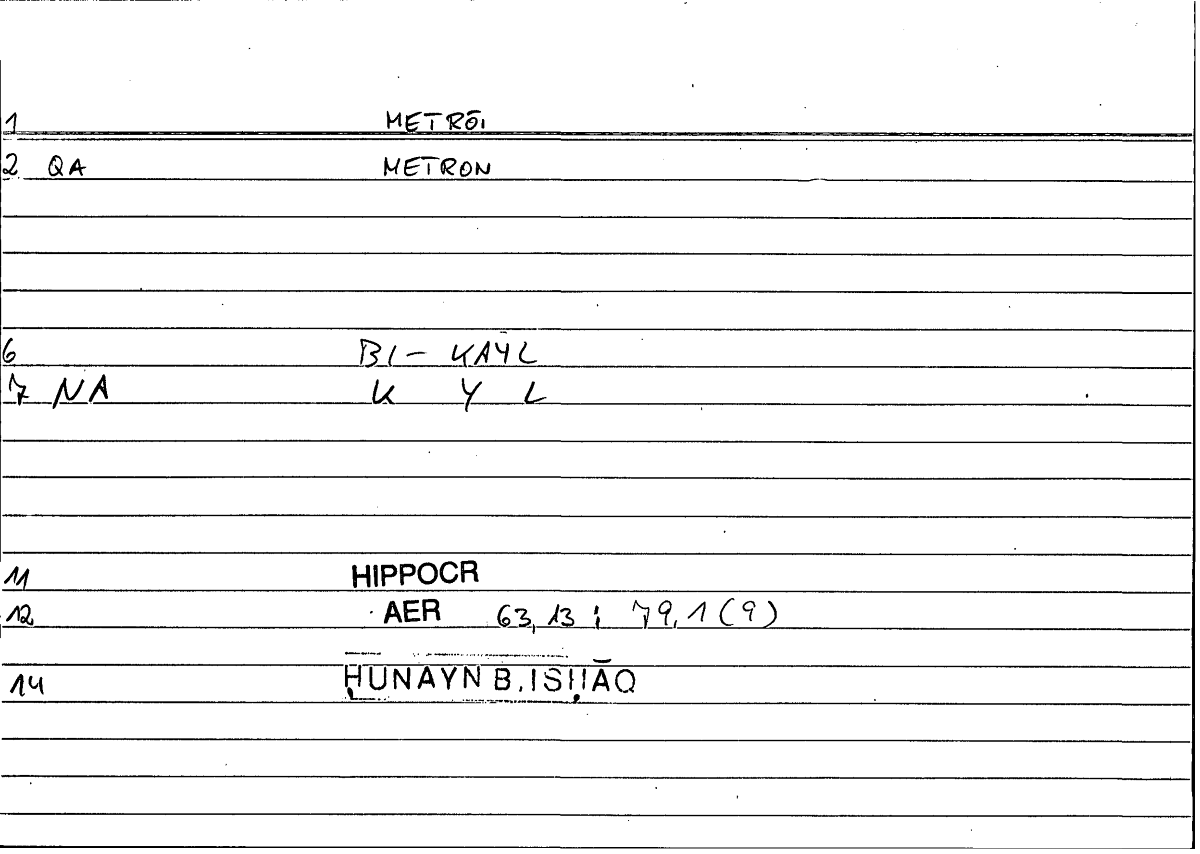 1 METRŌI
2 QA METRON
6 BI- KAYL
7 NA K Y L
11 HIPPOCR
12 AER 63,13 ; 79,1 (9)
14 ḤUNAYN B. ISḤĀQ